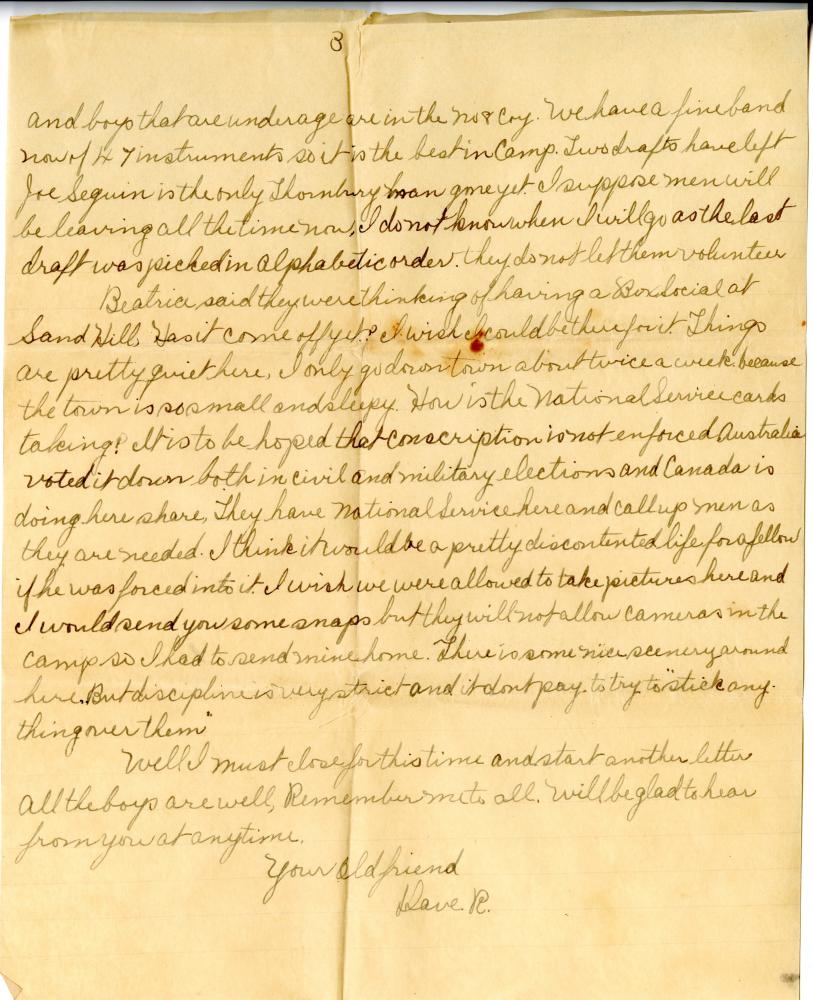 3
and boys that are underage are in the No 8 Coy. We have a fine band
now of 47 instruments so it is the best in Camp. Two drafts have left
Joe Seguin is the only Thornbury man gone yet. I suppose men will
be leaving all the time now, I do not know when I will go as the last
draft was picked in alphabetic order. they do not let them volunteer
Beatrice said they were thinking of having a Box Social at
Sand Hill. Has it come off yet? I wish I could be there for it Things
are pretty quiet here, I only go down town about twice a week because
the town is so small and sleepy. How is the National Service cards
taking? It is to be hoped that conscription is not enforced Australia
voted it down both in civil and military elections and Canada is
doing here share, They have National Service here and call up men as
they are needed. I think it would be a pretty discontented life for a fellow
if he was forced into it. I wish we were allowed to take pictures here and
I would send you some snaps but they will not allow cameras in the
camp so I had to send mine home. There is some nice scenery around
here. But discipline is very strict and it dont pay to try to "stick any-
thing over them"
Well I must close for this time and start another letter
All the boys are well, Remember me to all. Will be glad to hear
from you at anytime.
Your old friend
Dave. R.